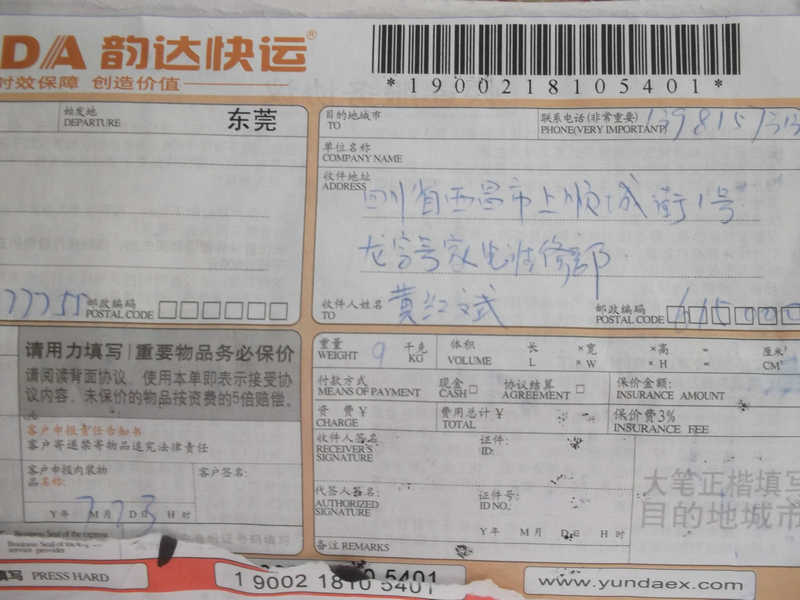 DA 韵达快运®
时效保障 创造价值
*190021810540 1*
始发地
DEPARTURE
东莞
目的地城市
TO
联系电话(非常重要)
PHONE(VERY IMPORTANT)
单位名称
COMPANY NAME
收件地址
ADDRESS
四川省西昌市上顺城街1号
收件人姓名
TO
黄红斌
邮政编码
POSTAL CODE
615000
77755
邮政编码
POSTAL CODE
请用力填写|重要物品务必保价
请阅读背面协议，使用本单即表示接受协
议内容。未保价的物品按资费的5倍赔偿。
客户申报责任告知书
客户寄递禁寄物品追究法律责任
客户申报内装物
品名称:
客户签名:
Y年 M月 D日 H时
Business Seal of the express
service provider
重量
WEIGHT
9
千克
KG
体积
VOLUME
长 ×宽 ×高 = 厘米³
L ×W ×H = CM³
付款方式
MEANS OF PAYMENT
现金
CASH□
协议结算
AGREEMENT□
保价金额:
INSURANCE AMOUNT
资费¥
CHARGE
费用总计¥
TOTAL
保价费3%
INSURANCE FEE
收件人签名
RECEIVER'S
SIGNATURE
证件:
ID:
代签人签名:
AUTHORIZED
SIGNATURE
证件号:
ID NO.:
Y年 M月 D日 H时
备注 REMARKS
大笔正楷填写
目的地城市
填写 PRESS HARD
1 9002 1810 5401
www.yundaex.com